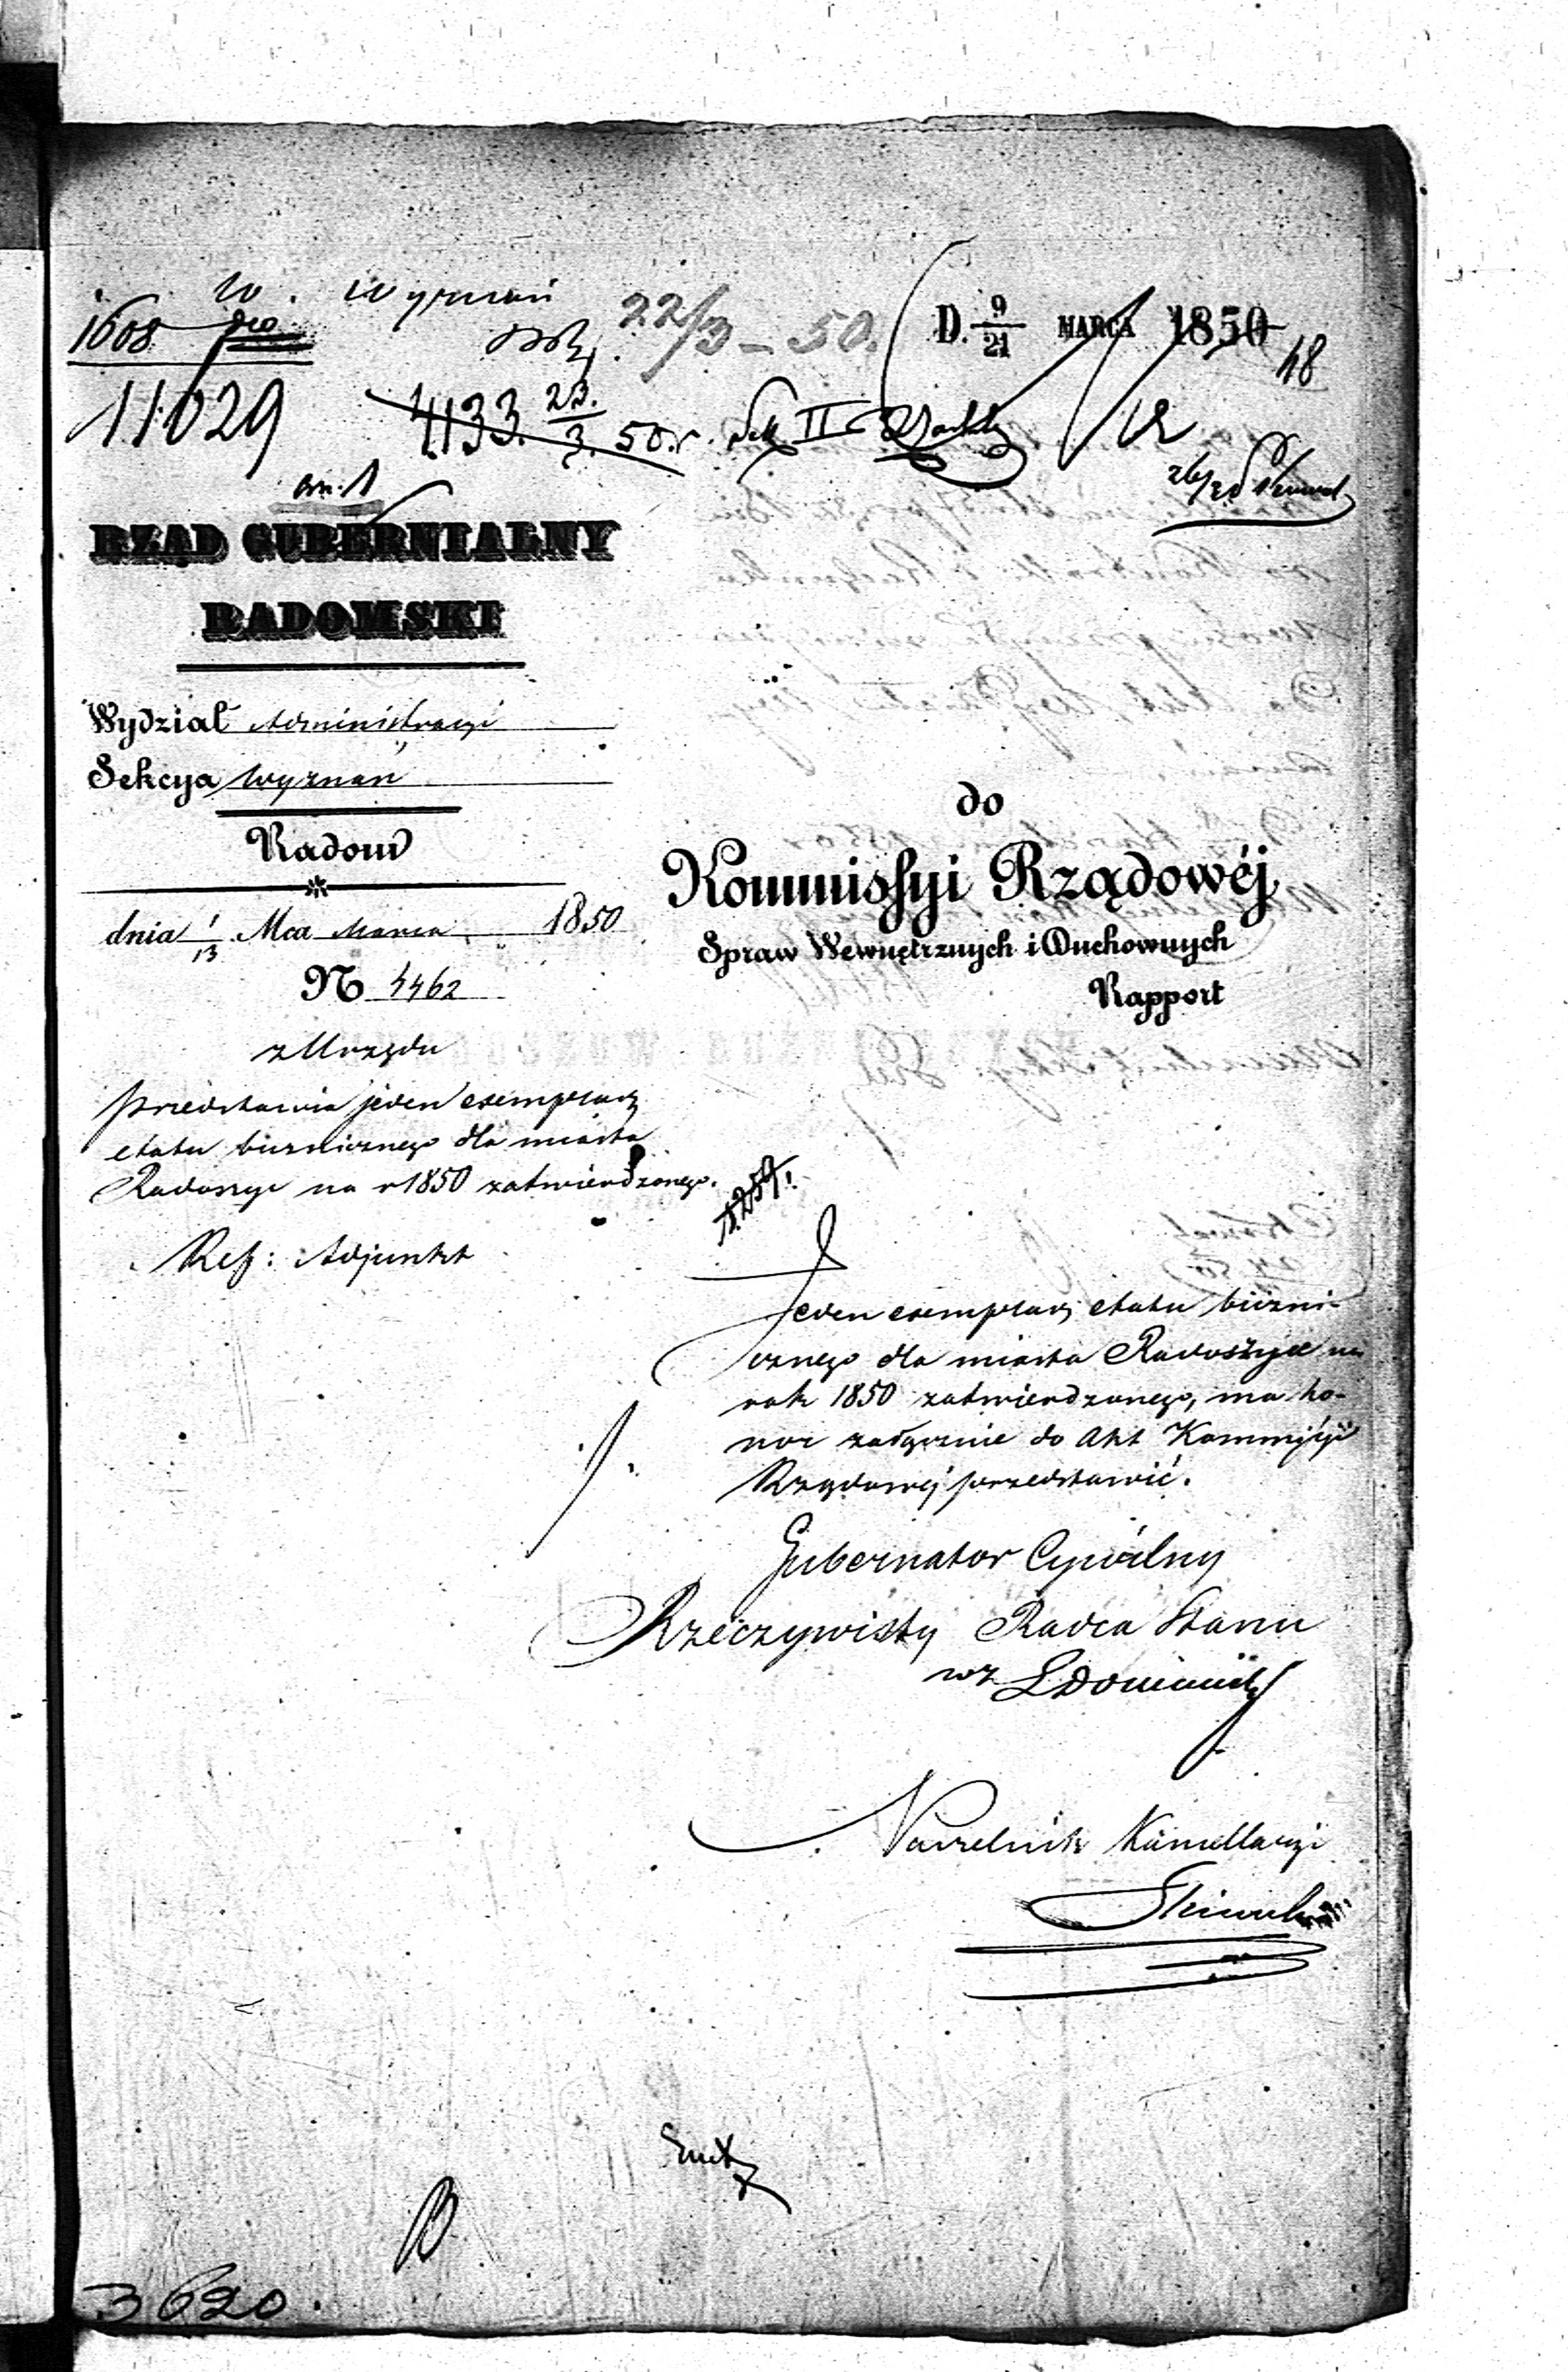 W. Wyznań
1608
22/3 – 50.
D. 9/21 MARCA 1850
48
11029
4133. 23./3. 50.r. Sek II
RZĄD GUBERNIALNY
RADOMSKI
Wydział Administracyi
Sekcya Wyznań
Radom
dnia 1/13 Mca Marca 1850
N 4462
z Urzędu
Przedstawia jeden exemplarz
etatu bużnicznego dla miasta
Radoszyc na r 1850 zatwierdzonego.
Ref: Adjunkt
do
Kommissyi Rządowéj
Spraw Wewnętrznych i Duchownych
Rapport
Jeden exemplarz etatu bużni-
cznego dla miasta Radoszyce na
rok 1850 zatwierdzonego, ma ho-
nor załącznie do Akt Kommissyi
Rządowéj przedstawić.
Gubernator Cywilny
Rzeczywisty Radca Stanu
wz
Naczelnik Kancellaryi
3620.